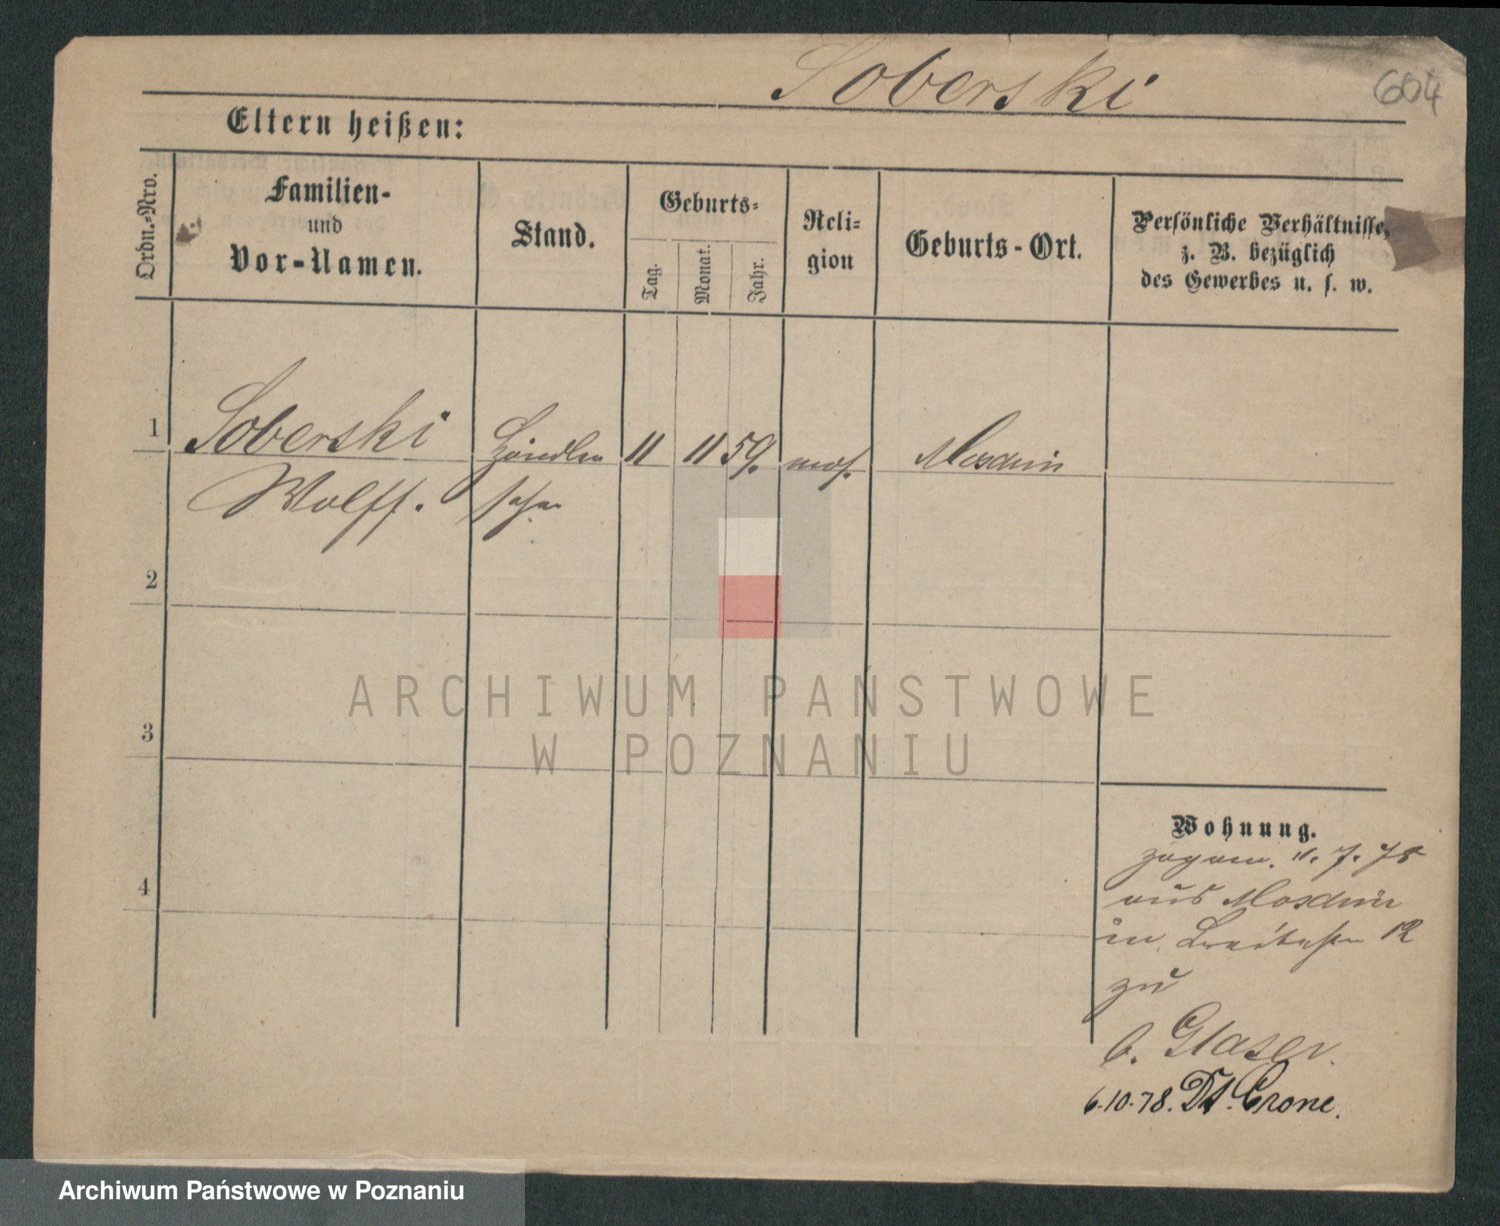 Soberski
604
Eltern heißen:
Ordn.-Nro.
Familien-
und
Vor-Namen.
Stand.
Geburts-
Tag.
Monat.
Jahr.
Reli-
gion
Geburts-Ort.
Persönliche Verhältnisse,
z. B. bezüglich
des Gewerbes u. s. w.
1 Soberski Händler 11 11 59. mos. Moschin
Wolff.
2
ARCHIWUM PAŃSTWOWE
W POZNANIU
3
4
Wohnung.
11. 7. 78
aus Moschin
in Breitestr 12
zu
C. Glaser.
6.10.78. Dt. Crone.
Archiwum Państwowe w Poznaniu